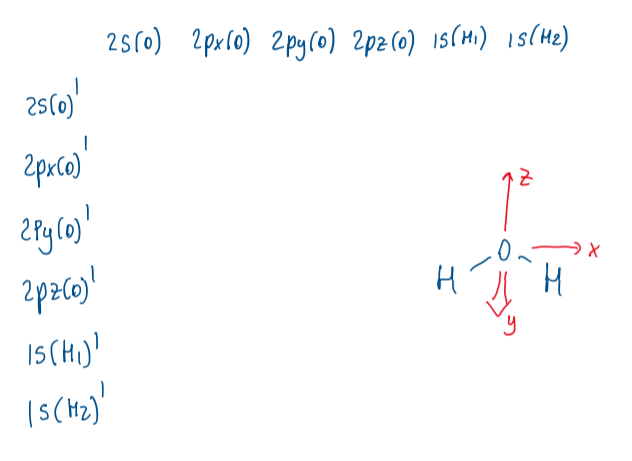 2s(O) 2px(O) 2py(O) 2pz(O) 1s(H1) 1s(H2)
2s(O)'
2px(O)'
2Py(O)'
2pz(O)'
1s(H1)'
1s(H2)'
z
O x
H H
y